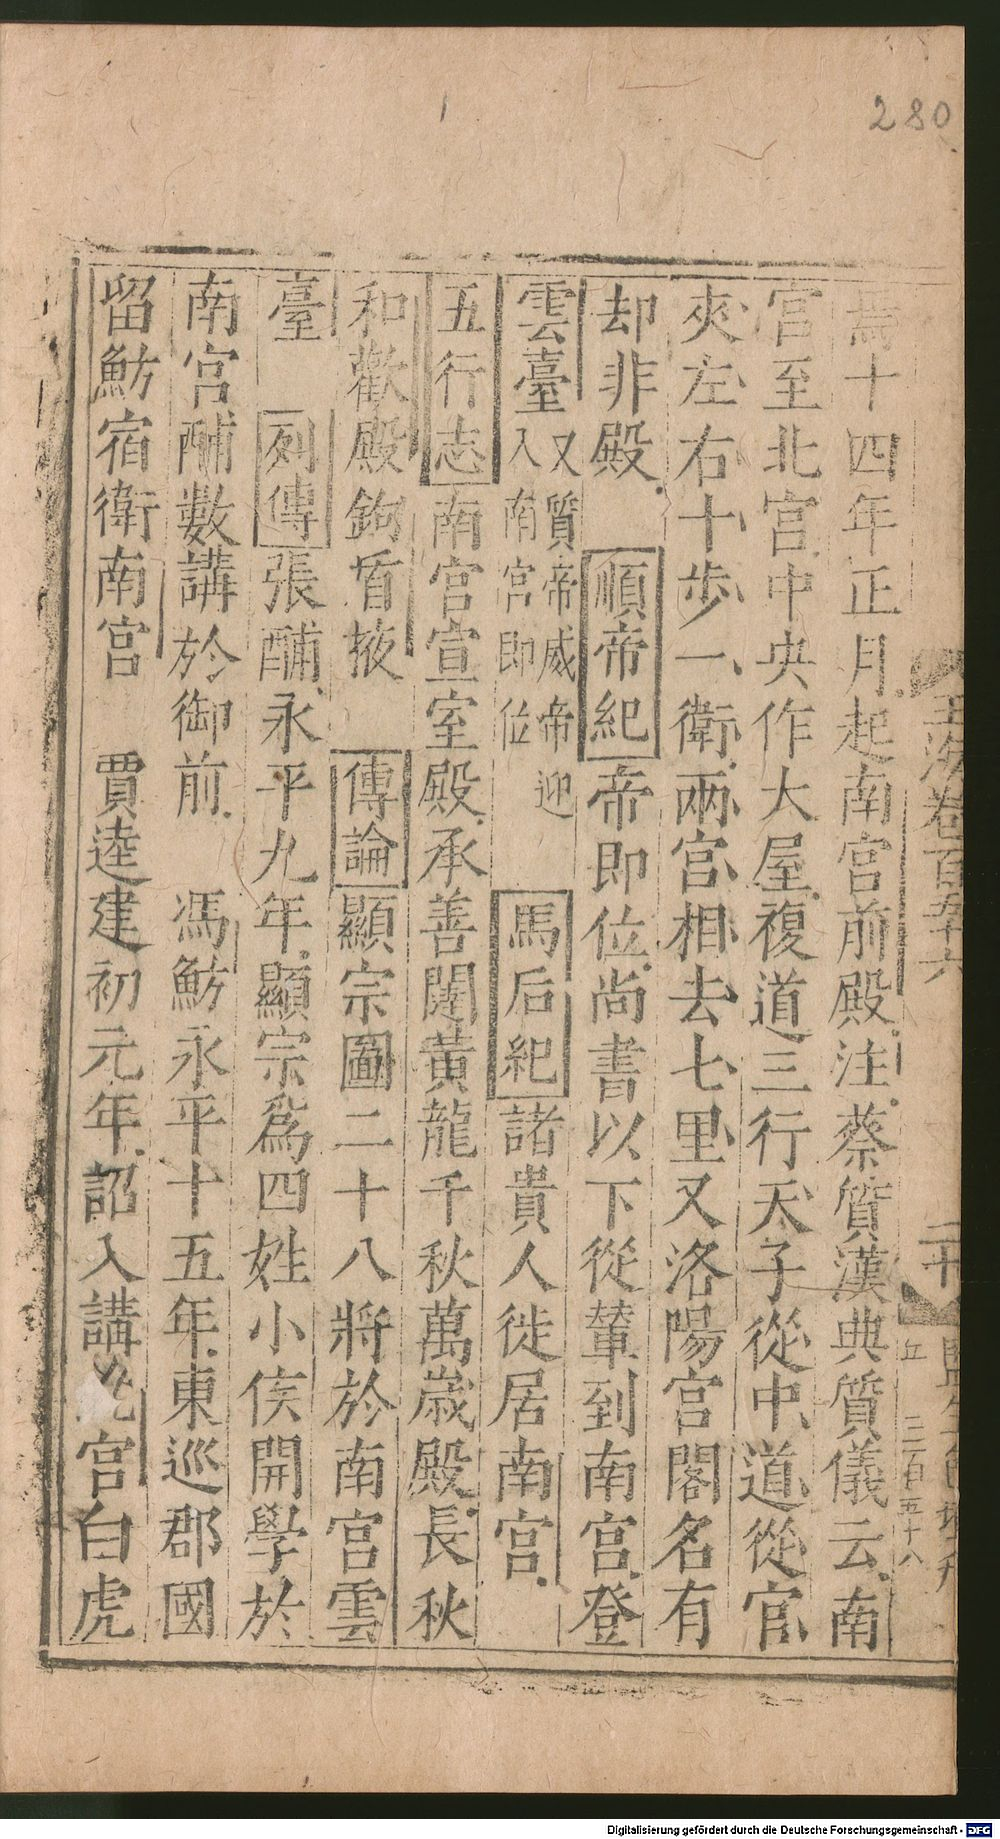 280
玉海卷百五十六
二十
三百五十八
焉十四年正月起南宮前殿注蔡質漢典質儀云南
宮至北宮中央作大屋複道三行天子從中道從官
夾左右十步一衛兩宮相去七里又洛陽宮閣名有
却非殿 順帝紀帝即位尚書以下從輦到南宮登
雲臺又質帝威帝迎入南宮即位 馬后紀諸貴人徙居南宮
五行志南宮宣室殿承善闥黃龍千秋萬歲殿長秋
和歡殿鉤盾掖 傳論顯宗圖二十八將於南宮雲
臺 列傳張酺永平九年顯宗為四姓小侯開學於
南宮酺數講於御前 馮魴永平十五年東巡郡國
留魴宿衛南宮 賈逵建初元年詔入講北宮白虎
Digitalisierung gefördert durch die Deutsche Forschungsgemeinschaft - DFG